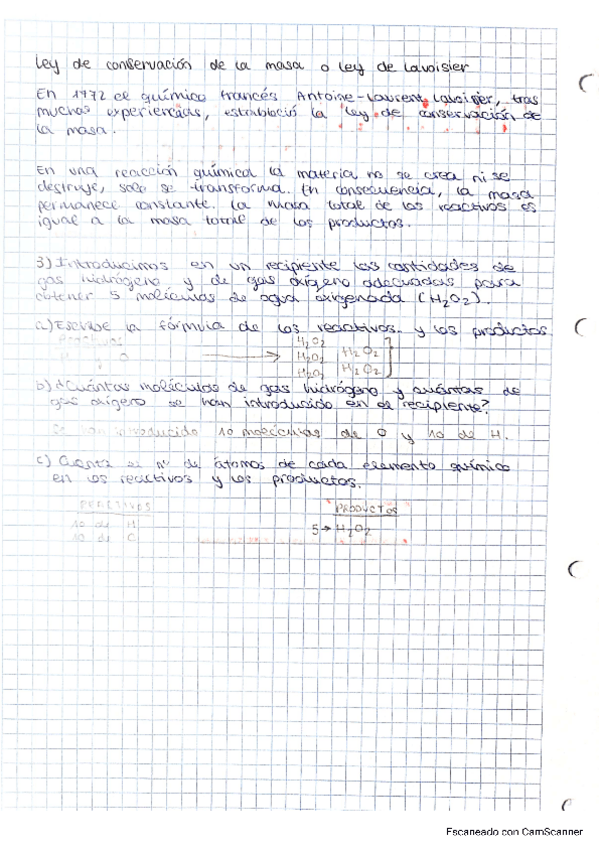 Ley de conservación de la masa o Ley de Lavoisier
En 1772 el químico francés Antoine-Laurent Lavoisier, tras
muchas experiencias, estableció la ley de conservación de
la masa.
En una reacción química la materia no se crea ni se
destruye, solo se transforma. En consecuencia, la masa
permanece constante. La masa total de los reactivos es
igual a la masa total de los productos.
3) Introducimos en un recipiente las cantidades de
gas hidrógeno y de gas oxígeno adecuadas para
obtener 5 moléculas de agua oxigenada (H2O2).
a) Escribe la fórmula de los reactivos y los productos
H2O2
H2O2 H2O2
H2O2 H2O2
b) ¿Cuántas moléculas de gas hidrógeno y cuántas de
gas oxígeno se han introducido en el recipiente?
Se han introducido 10 moléculas de O y 10 de H.
c) Cuenta el nº de átomos de cada elemento químico
en los reactivos y los productos.
REACTIVOS PRODUCTOS
10 de H 5 → H2O2
10 de O
Escaneado con CamScanner